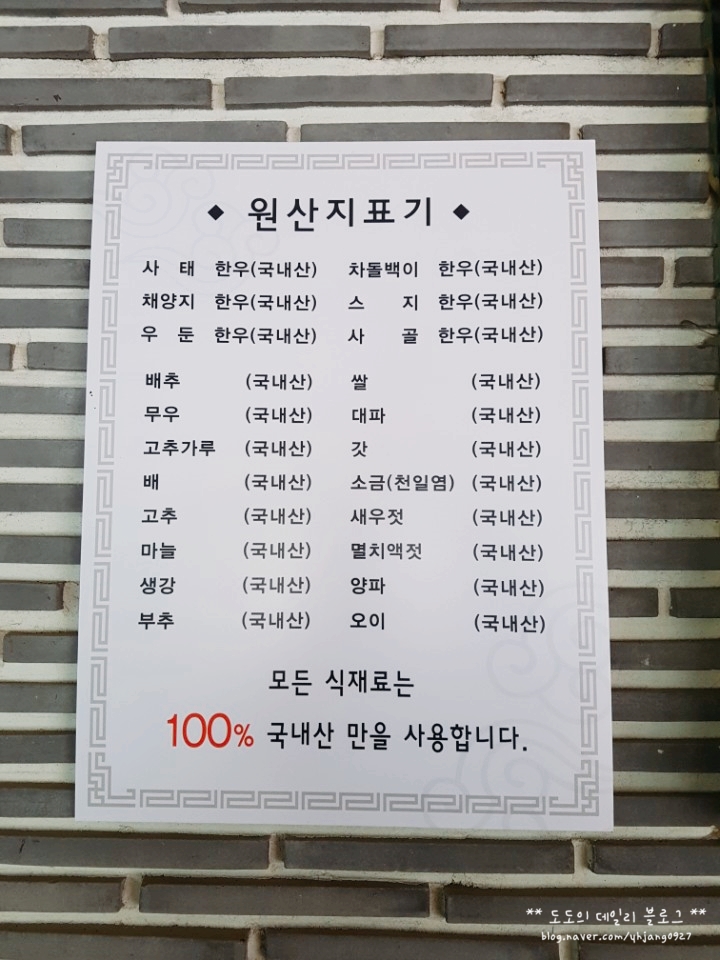 ◆ 원산지표기 ◆
사 태 한우(국내산) 차돌백이 한우(국내산)
채양지 한우(국내산) 스 지 한우(국내산)
우 둔 한우(국내산) 사 골 한우(국내산)
배추 (국내산) 쌀 (국내산)
무우 (국내산) 대파 (국내산)
고추가루 (국내산) 갓 (국내산)
배 (국내산) 소금(천일염) (국내산)
고추 (국내산) 새우젓 (국내산)
마늘 (국내산) 멸치액젓 (국내산)
생강 (국내산) 양파 (국내산)
부추 (국내산) 오이 (국내산)
모든 식재료는
100% 국내산 만을 사용합니다.
** 도도의 데일리 블로그 **
blog.naver.com/yhjang0927